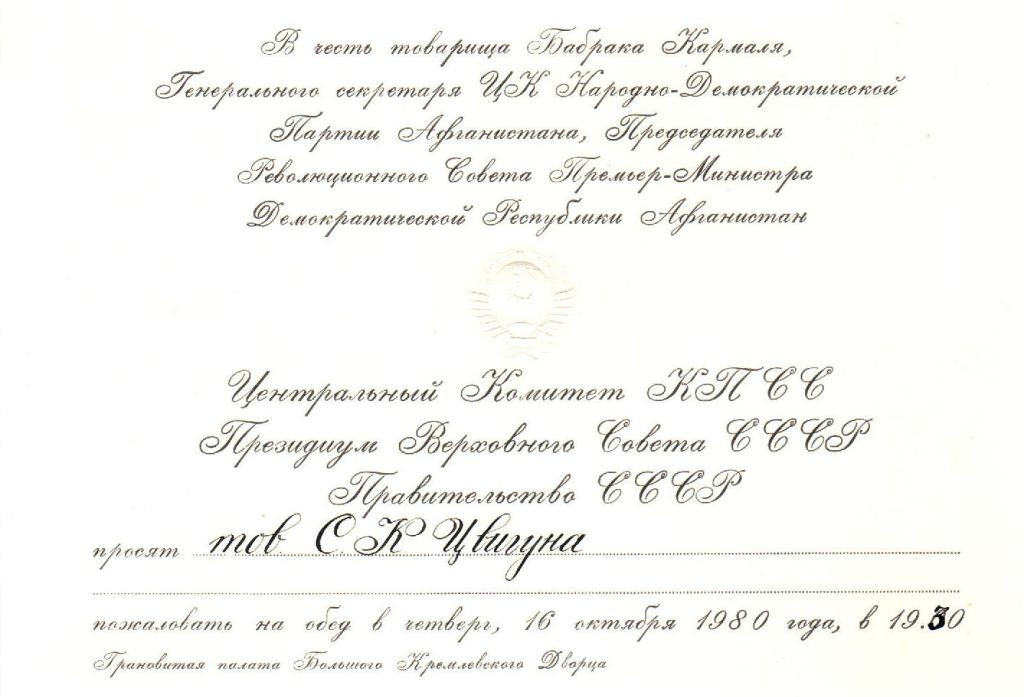 В честь товарища Бабрака Кармаля,
Генерального секретаря ЦК Народно-Демократической
Партии Афганистана, Председателя
Революционного Совета Премьер-Министра
Демократической Республики Афганистан
Центральный Комитет КПСС
Президиум Верховного Совета СССР
Правительство СССР
просят тов. С. К Цвигуна
пожаловать на обед в четверг, 16 октября 1980 года, в 19.30
Грановитая палата Большого Кремлевского Дворца